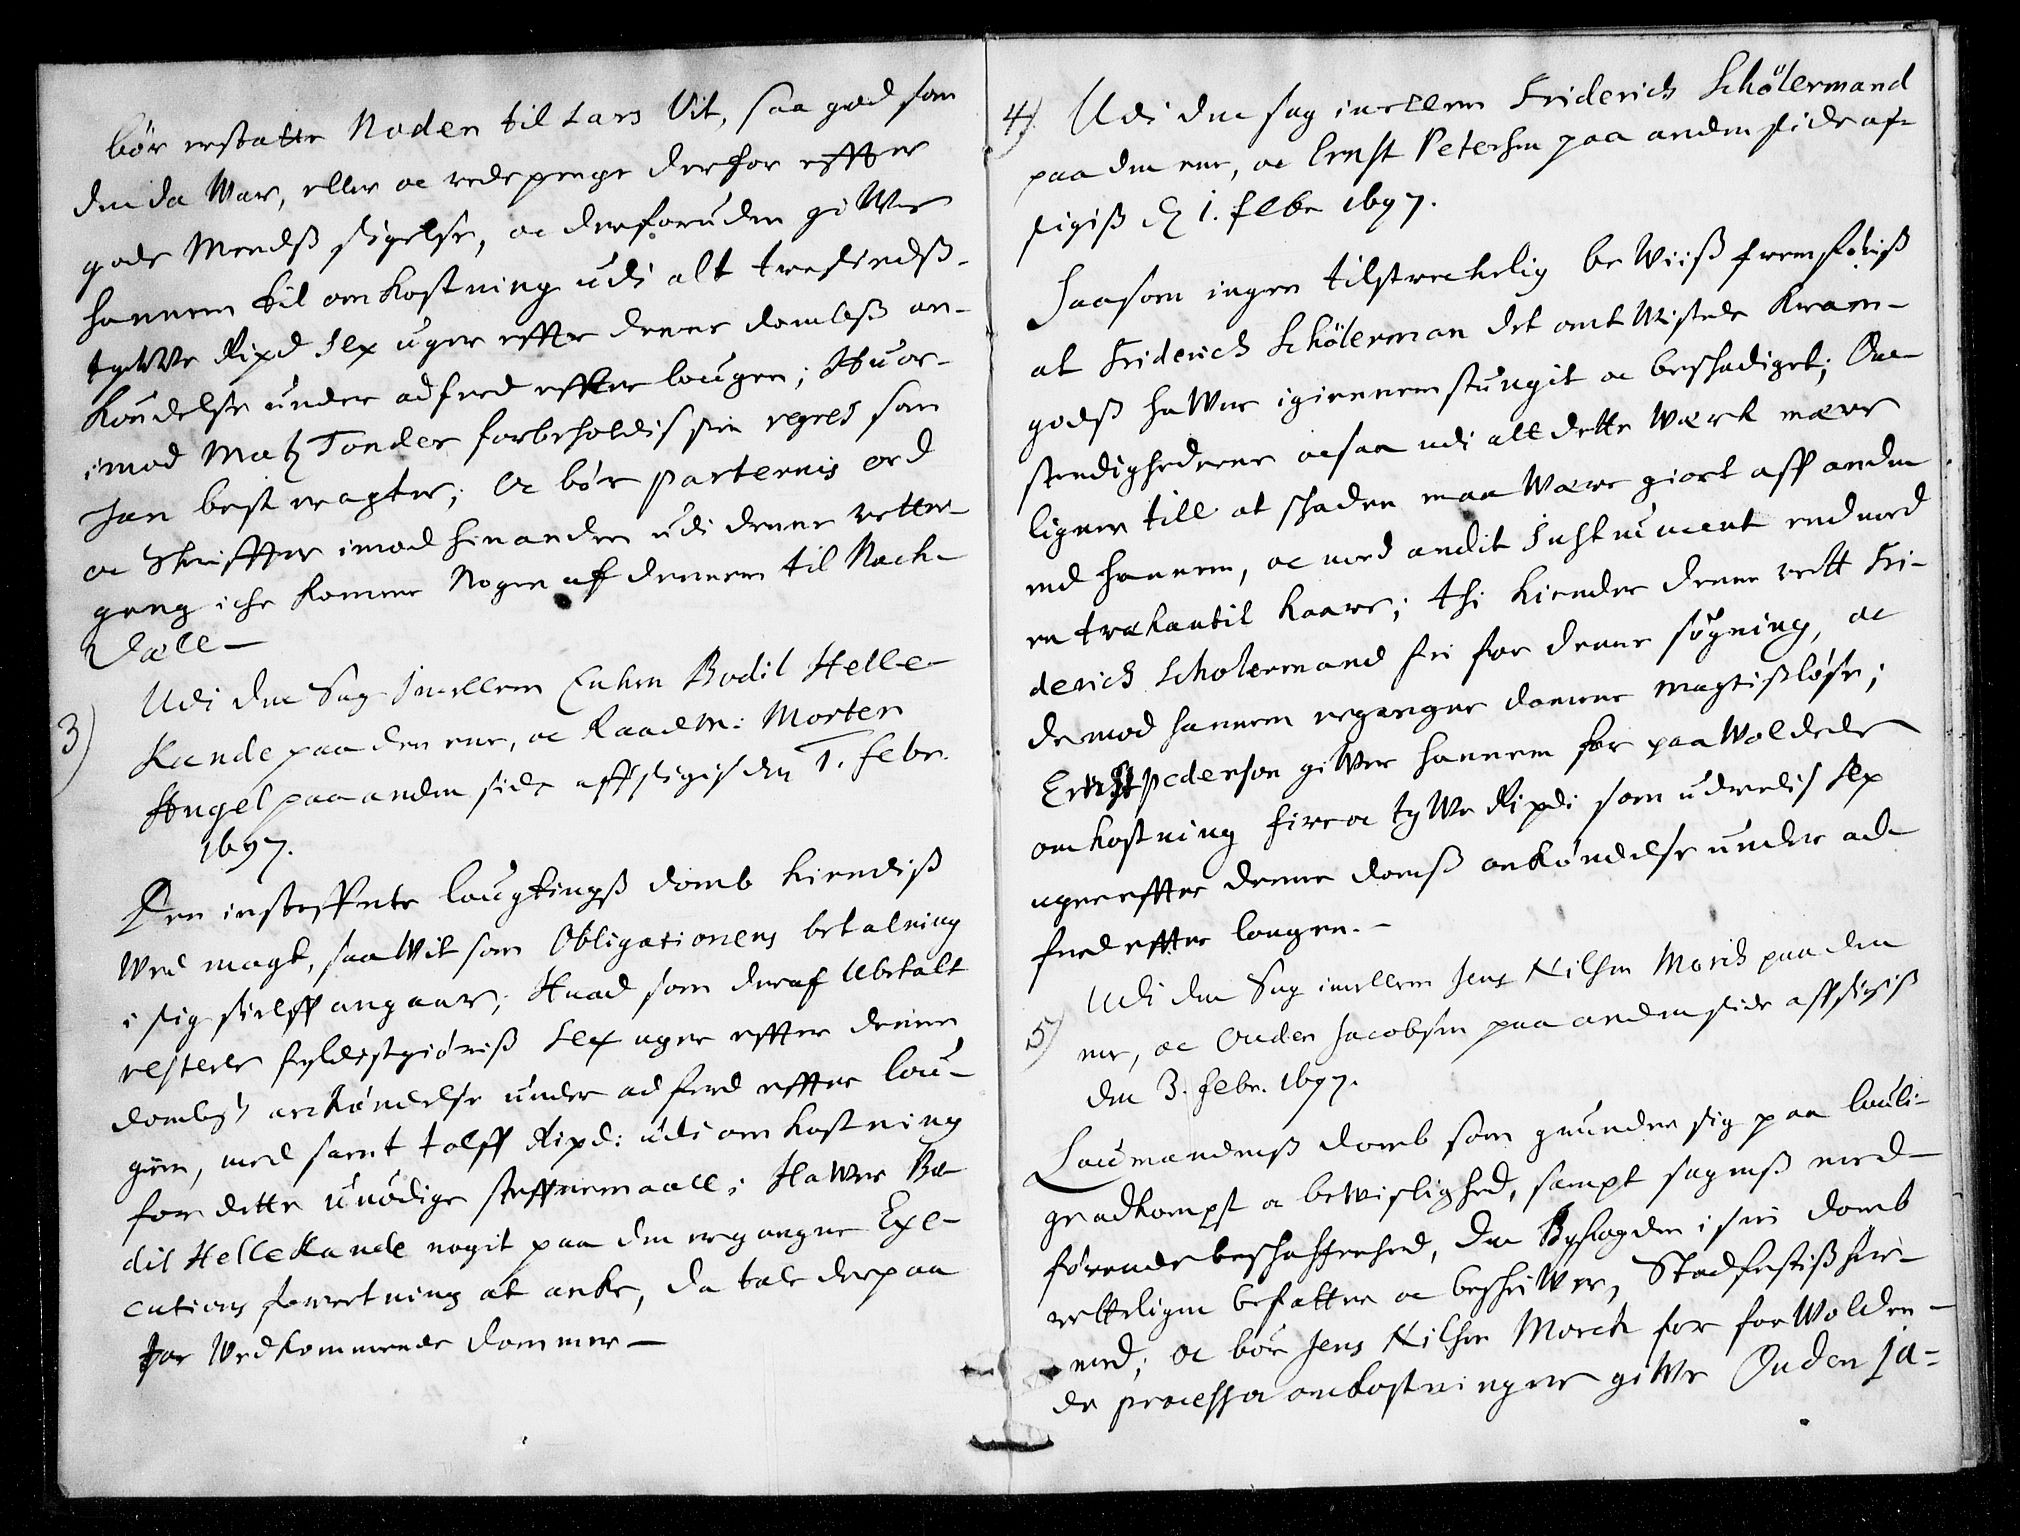 bör erstatte Noden til Lars Vit, saa god som
den da War, eller oc rede penge derfor effter
gode Mendß sigelse, oc derforuden giWer
hannem til omkostning udi alt tresindß-
tyWe Rixd sex uger effter denne dombß an-
kondelse under adferd effter lougen; Huor-
imod Matz Tonder forbeholdis sin regres som
han best eragter; Oc bör parternis ord
oc Skriffter imod hinanden udi denne retter-
gang iche komme Nogen af dennem til Nach-
dæll-
3) Udi den Sag Imellem Enken Bodil Helle-
Kande paa den ene, oc Raadm: Morten
Hugel paa anden side affsigis den 1. febr.
1697.
Den insteffnte lougtingß domb kiendiß
Wed magt, saa Wit som Obligationens betalning
i sig sielff angaar; Huad som deraf Ubetalt
resterer fyldistgiöriß Sex uger effter denne
dombß ankondelse under adferd effter lou-
gen, med samt tolff Rixd: udi omkostning
for dette unödige steffnemaall; HaWer Bo-
dil HelleKande nogit paa den ergangne Exe-
cutions forretning at anke, da tale derpaa
for Vedkommende dommer-
4) Udi den sag imellem Friderich Schölermand
paa den ene, oc Ernst Petersen paa anden side af-
sigiß d 1. febr 1697.
Saasom ingen tilstrechelig beWiiß fremföriß
at Friderich Schölerman det omtWistede kram-
godß haWer igiennemstungit oc beschadiget; Om-
stendighederne ocsaa udi alt dette Wærk mere
ligner till at schaden maa Være giort aff anden
end hannem, oc med andit Instrument end med
en trækantit kaare; thi kiender denne rett Fri-
derich Scholermand fri for denne sögning, oc
de mod hannem ergangne domme magtißlöse;
Ernst Pederson giWer hannem for paaWoldede
omkostning fire oc tyWe Rixdr som udredis sex
uger effter denne domß anköndelse under ad-
ferd effter lougen.-
5) Udi den Sag imellem Jens Nilsen Morch paa den
ene, oc Onden Jacobsen paa anden side affsigiß
den 3. febr. 1697.
Laumandenß domb som grunder sig paa louli-
ge adkompst oc beWislighed, sampt sagenß med-
förende beschaffenhed, den Byfogden i sin domb
retteligen befatter oc beschriWer, Stadfestiß her-
med; oc bör Jens Nilsen Morch for forWolden-
de processes omkostninger giWe Onden Ja-